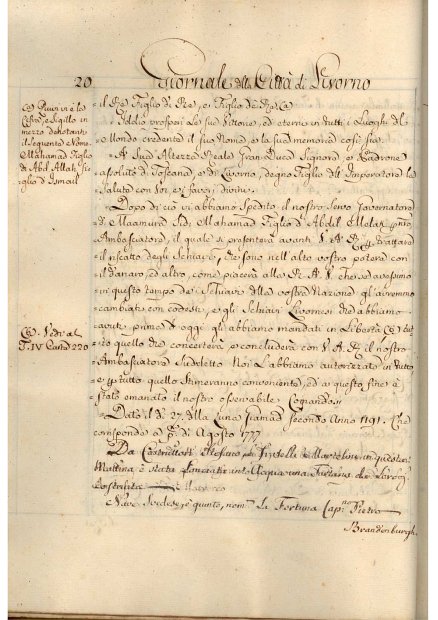 20
Giornale della Città di Livorno
(a) Quivi vi è la
Cifra, e Sigillo in
mezzo del
il seguente Nome.
Mahamad Figlio
di Abd Allah
Figlio d' Ismail
= il Re Figlio di Re, e Figlio de Re (a
= Iddio prosperi Le sue Vittorie, ed eterno in tutti i Luoghi del
= Mondo credente il suo Nome, e la sua memoria così sia.
= A Sua Altezza Reale Gran-Duca Signore, e Padrone
= assoluto di Toscana, e di Livorno, degno Figlio dell' Imperatore La
= Saluto con Voi, e i favori divini.
= Dopo di ciò vi abbiamo Spedito il nostro Servo Governatore
= di Maamura Sidi Mahamad Figlio d' Abdil Melak
= Ambasciatore, il quale si presenterà avanti V. A. R. Trattare
= il riscatto degli Schiavi, che sono nell' alto vostro potere con
= il danaro, ed altro, come piacerà alla R. A. V. che se avessimo
= in questo tempo de' Schiavi della vostra Nazione gli avremmo
= cambiati con codesti, e gli Schiavi Livornesi che abbiamo
= avuti prima d' oggi gli abbiamo mandati in Libertà
(a Vedi al
T. IV Carta 220
= quello che concerterà, e concluderà con V. A. R. il nostro
= Ambasciatore Sudetto Noi L' abbiamo autorizzato in tutto
= e tutto quello Stimeranno conveniente, ed a questo fine è
= Stato emanato il nostro osservabile Comando.
= Dato il dì 27. della Luna Jamad secondo Anno 1191. Che
corrisponde al p.mo di Agosto 1777.
Da
Mattina è stata Acqua una Tartana
Nave Svedese, è quinto, nom.ta La Fortuna Cap.no Pietro
Brandenburgh.